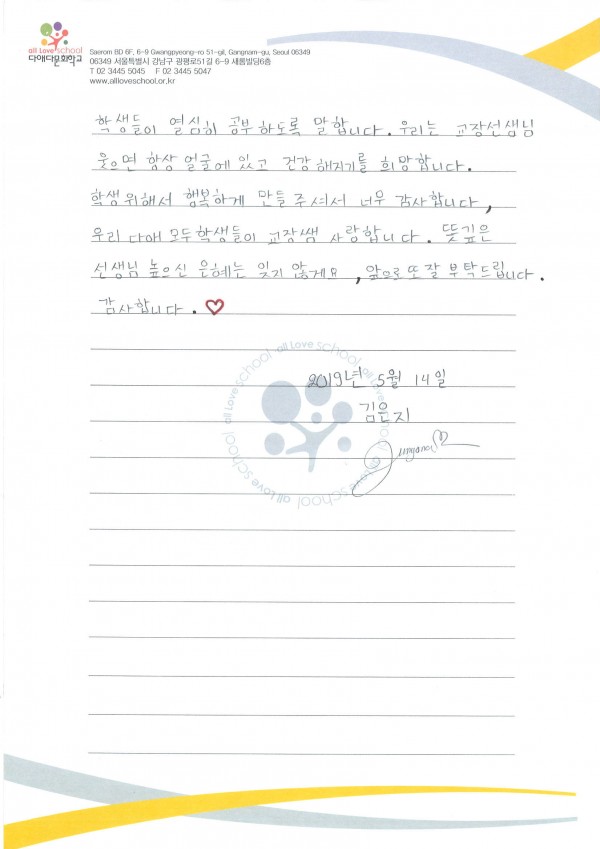 all Love school
다애다문화학교
Saerom BD 6F, 6-9 Gwangpyeong-ro 51-gil, Gangnam-gu, Seoul 06349
06349 서울특별시 강남구 광평로51길 6-9 새롬빌딩6층
T 02 3445 5045 F 02 3445 5047
www.allloveschool.or.kr
학생들이 열심히 공부하도록 말합니다. 우리는 교장선생님
웃으면 항상 얼굴에 있고 건강해지기를 희망합니다.
학생위해서 행복하게 만들 주셔서 너무 감사합니다,
우리 다애 모두학생들이 교장쌤 사랑합니다. 뜻깊은
선생님 높으신 은혜는 잊지 않게요, 앞으로 또 잘 부탁드립니다.
감사합니다. ♡
all Love school all Love school all Love school all Love school
2019년 5월 14일
김은지